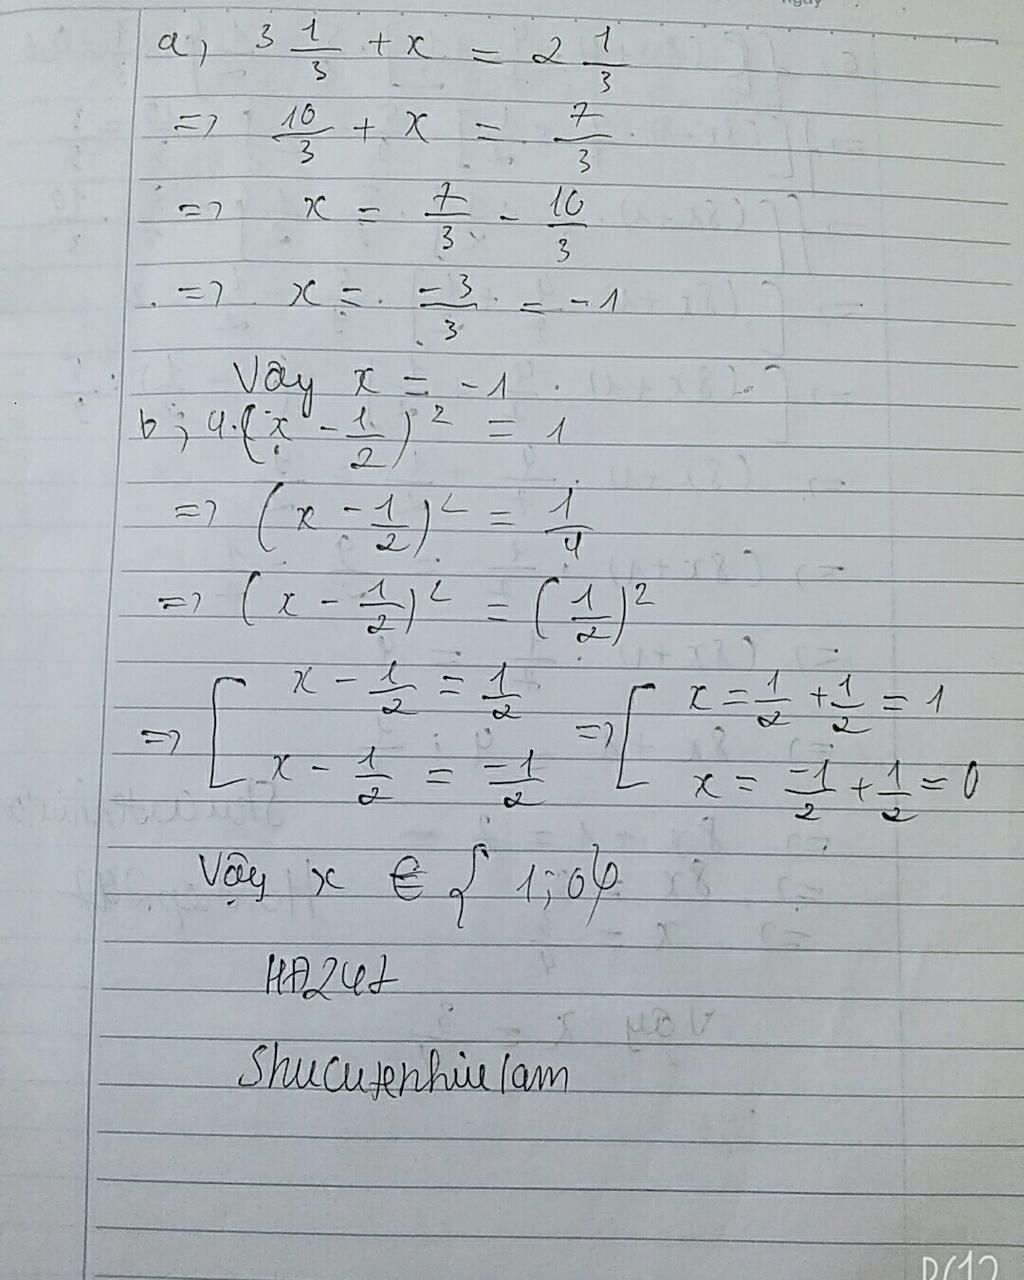 a, 3 1/3 + x = 2 1/3
=> 10/3 + x = 7/3
=> x = 7/3 - 10/3
=> x = -3/3 = -1
Vậy x = -1
b; 4.(x - 1/2)² = 1
=> (x - 1/2)² = 1/4
=> (x - 1/2)² = (1/2)²
=> [ x - 1/2 = 1/2 => [ x = 1/2 + 1/2 = 1
x - 1/2 = -1/2 x = -1/2 + 1/2 = 0
Vậy x ∈ { 1; 0}
HĐ247
Shucutenhiulam